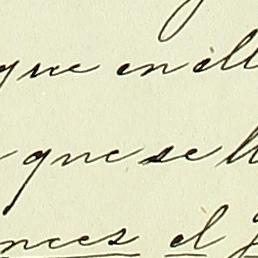 que en ell
que se ll
nces el